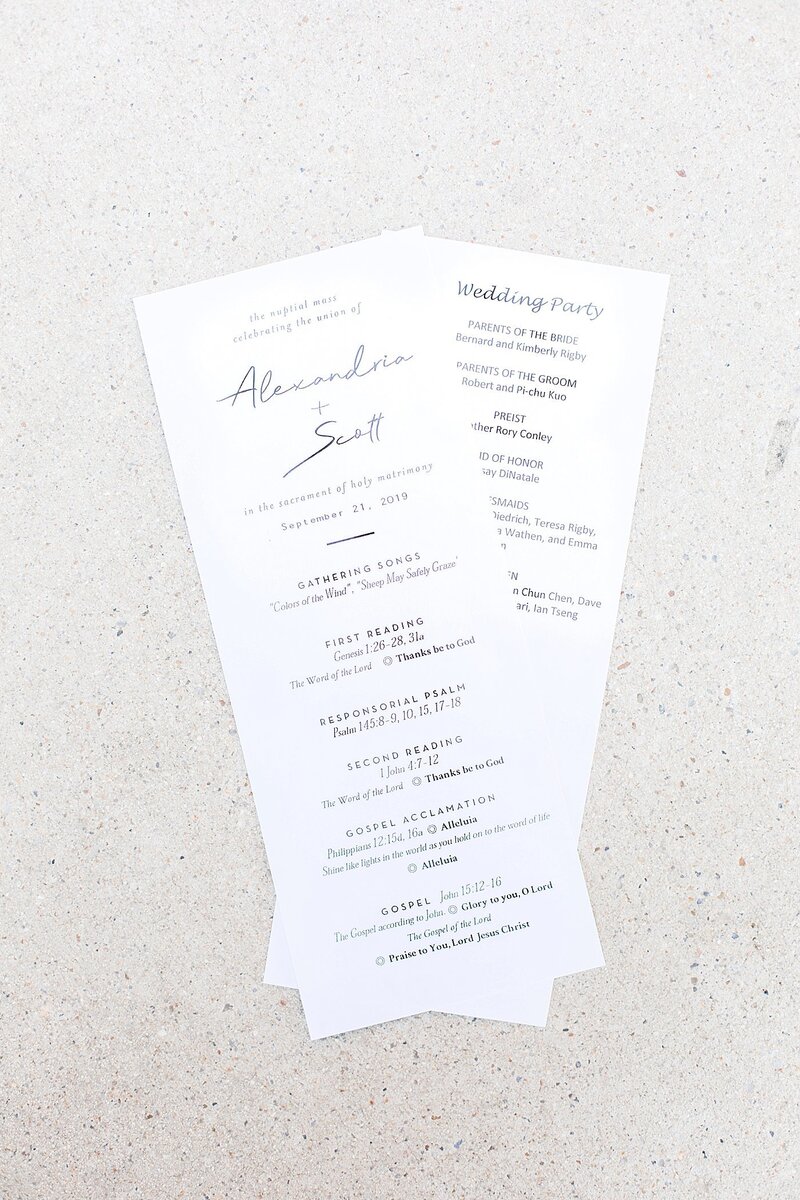 the nuptial mass
celebrating the union of
Alexandria
+
Scott
in the sacrament of holy matrimony
September 21, 2019
GATHERING SONGS
"Colors of the Wind", "Sheep May Safely Graze"
FIRST READING
Genesis 1:26-28, 31a
The Word of the Lord Thanks be to God
RESPONSORIAL PSALM
Psalm 145:8-9, 10, 15, 17-18
SECOND READING
1 John 4:7-12
The Word of the Lord Thanks be to God
GOSPEL ACCLAMATION
Philippians 12:15d, 16a Alleluia
Shine like lights in the world as you hold on to the word of life
Alleluia
GOSPEL John 15:12-16
The Gospel according to John. Glory to you, O Lord
The Gospel of the Lord
Praise to You, Lord Jesus Christ
Wedding Party
PARENTS OF THE BRIDE
Bernard and Kimberly Rigby
PARENTS OF THE GROOM
Robert and Pi-chu Kuo
PREIST
ther Rory Conley
ID OF HONOR
say DiNatale
SMAIDS
Diedrich, Teresa Rigby,
a Wathen, and Emma
n
EN
n Chun Chen, Dave
ari, Ian Tseng